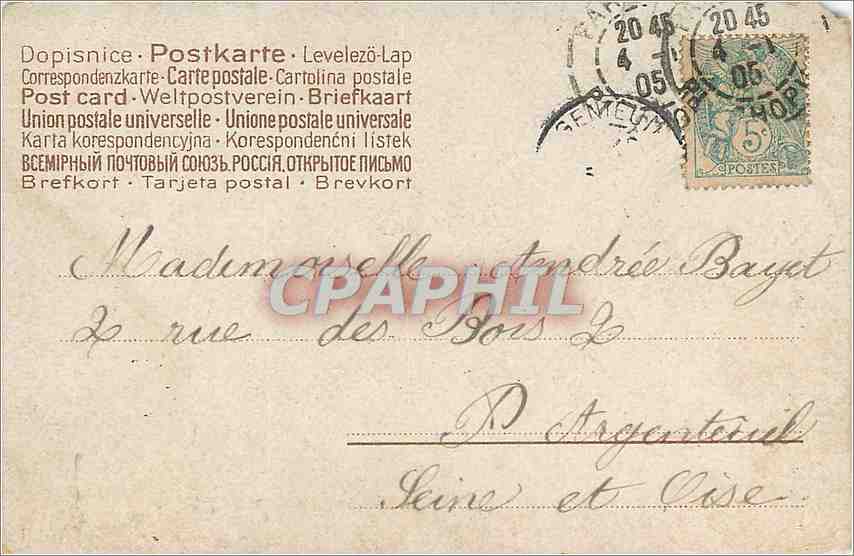 Dopisnice · Postkarte · Levelező-Lap
Correspondenzkarte · Carte postale · Cartolina postale
Post card · Weltpostverein · Briefkaart
Union postale universelle · Unione postale universale
Karta korespondencyjna · Korespondenční lístek
ВСЕМІРНЫЙ ПОЧТОВЫЙ СОЮЗЪ. РОССІЯ. ОТКРЫТОЕ ПИСЬМО
Brefkort · Tarjeta postal · Brevkort
20 45
4 - 1
05
20 45
4 - 1
05
5c
POSTES
Mademoiselle Andrée Bayet
2 rue des Bois 2
CPAPHIL
Argenteuil
Seine et Oise